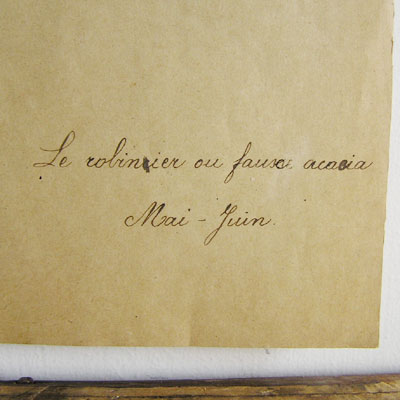 Le robinier ou faux acacia
Mai - Juin.